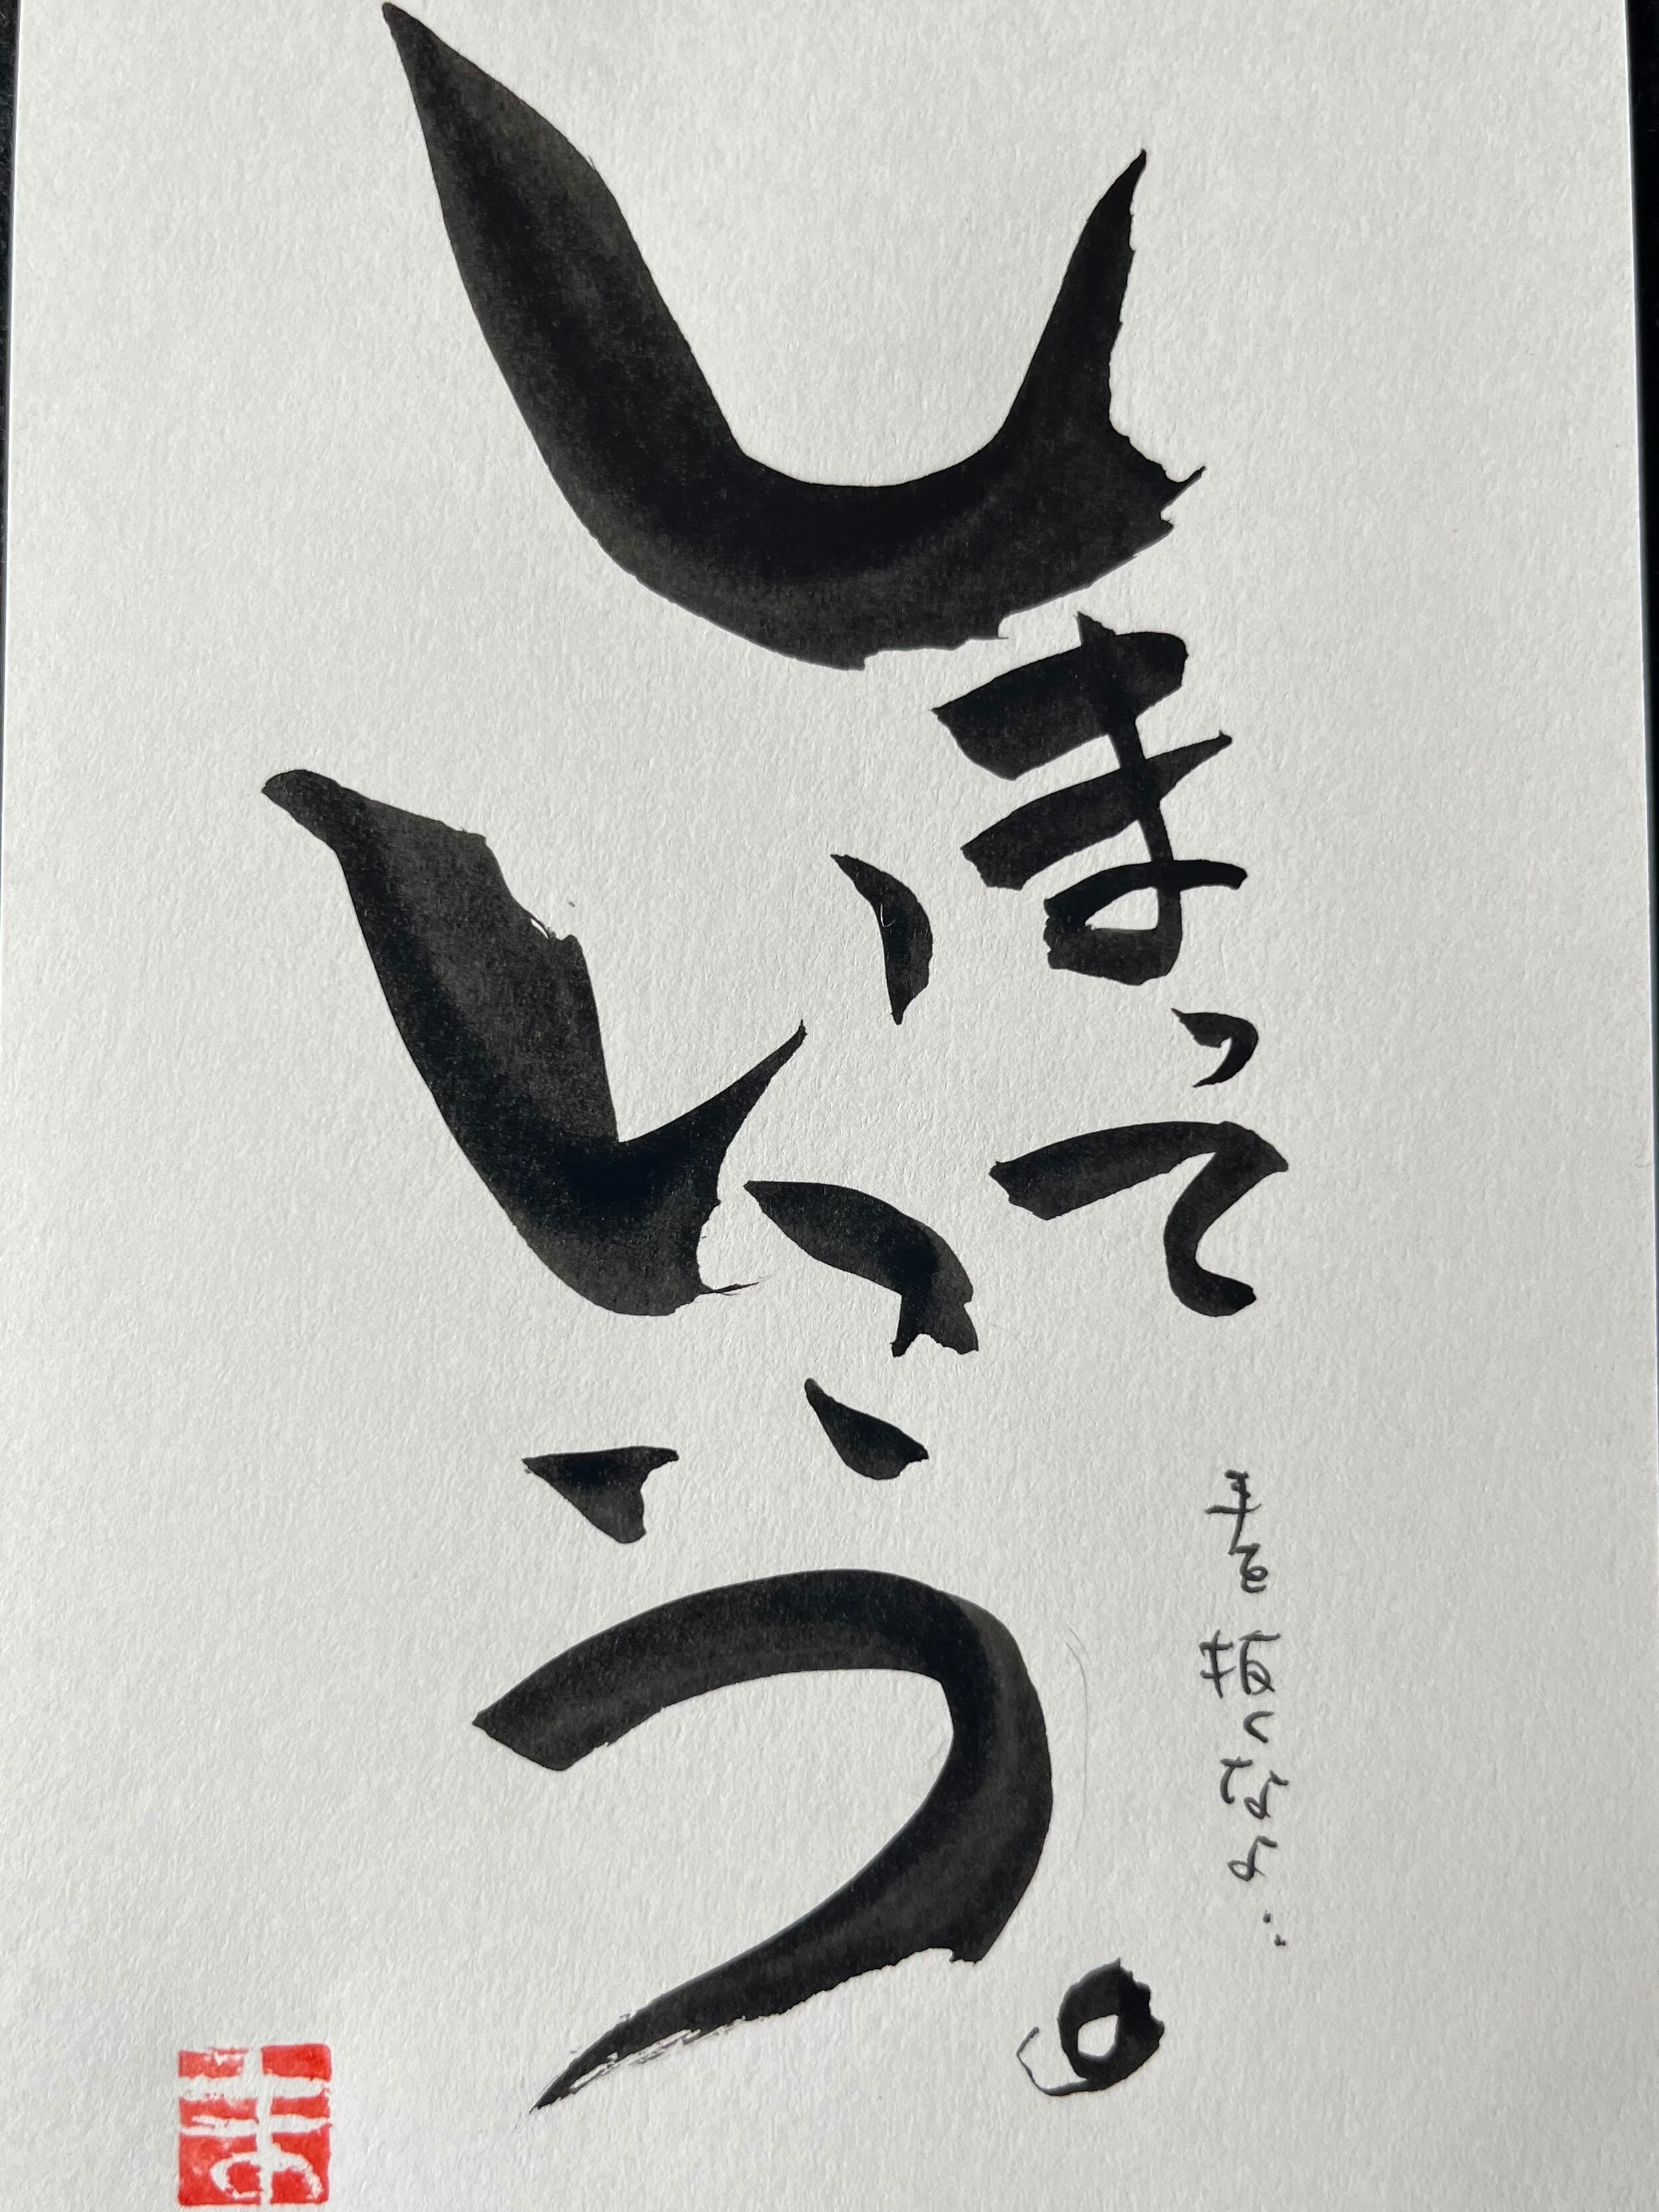 しまって
いこう。
手を抜くなよ‥